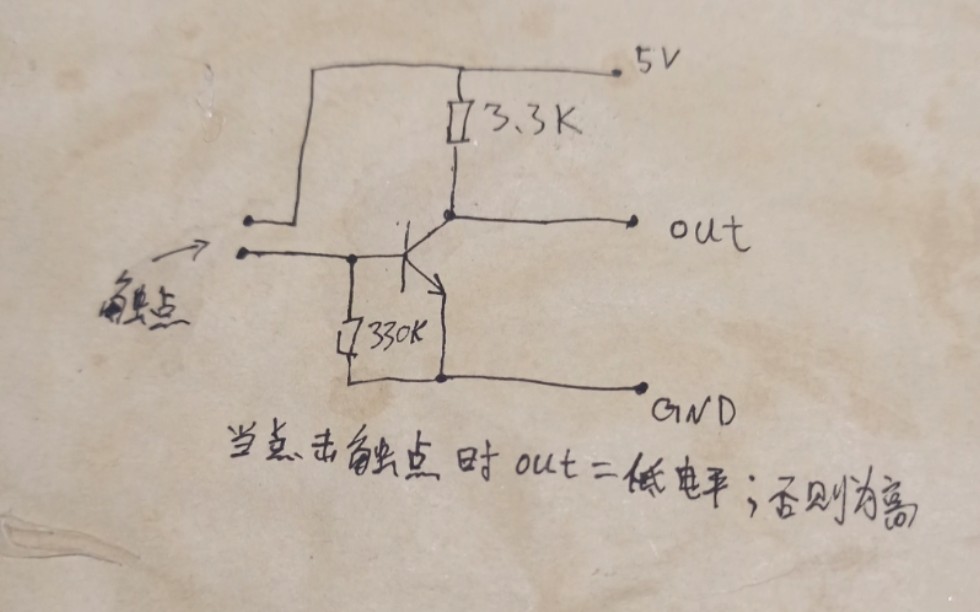 5V
3.3K
out
触点
330K
GND
当点击触点时out=低电平;否则为高